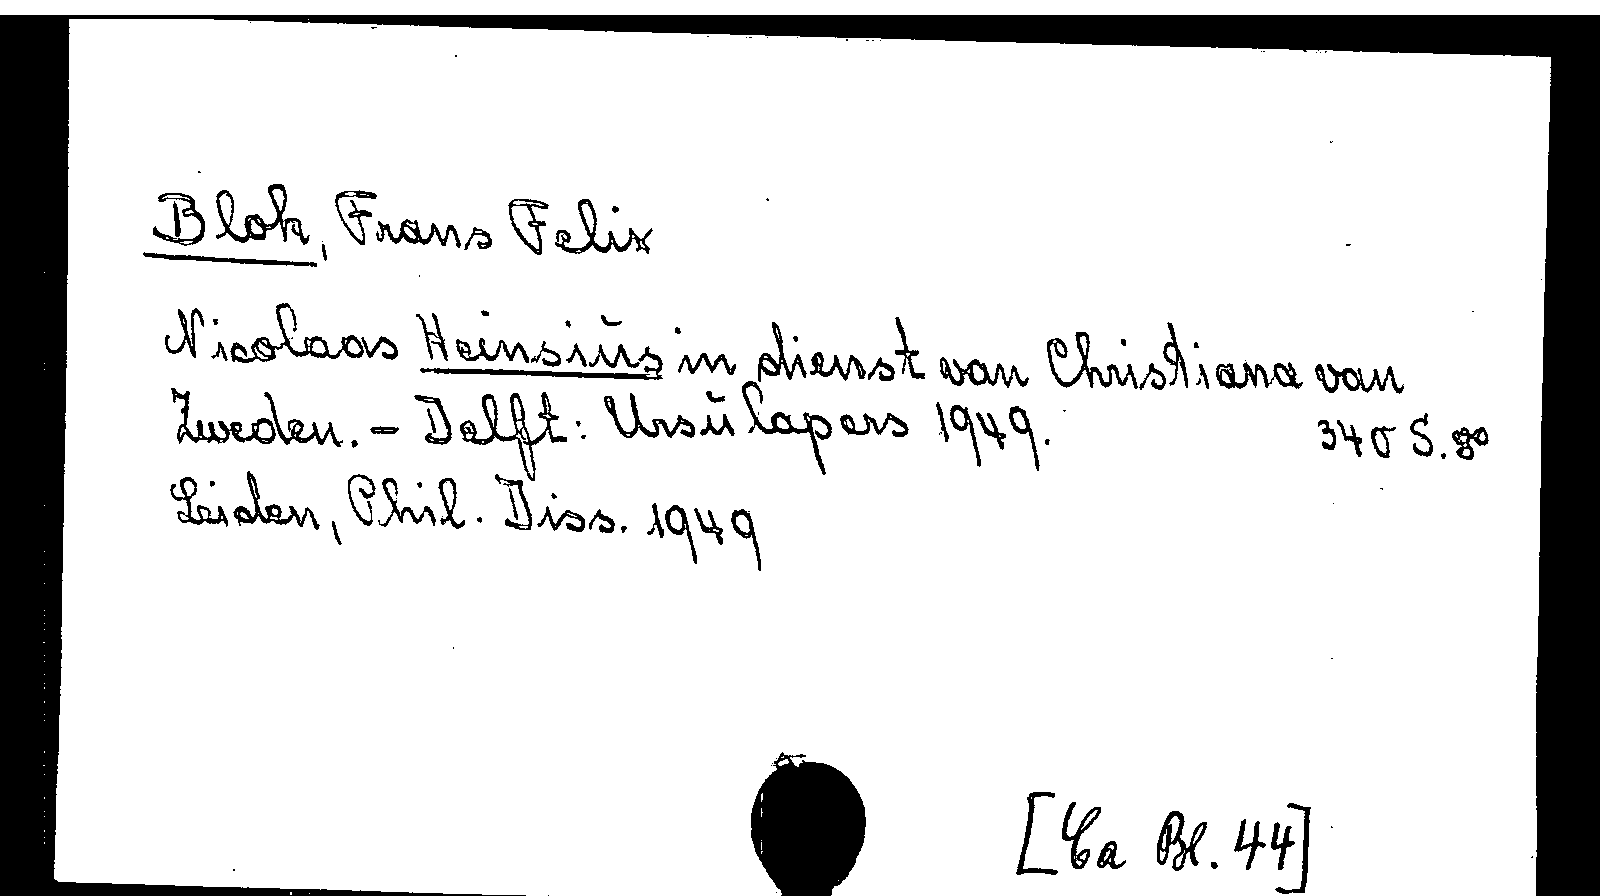 Blok, Frans Felix
Nicolaas Heinsius in dienst van Christiana van
Zweden. – Delft: Ursulapers 1949. 340 S. 8°
Leiden, Phil. Diss. 1949
[Ca Bl. 44]